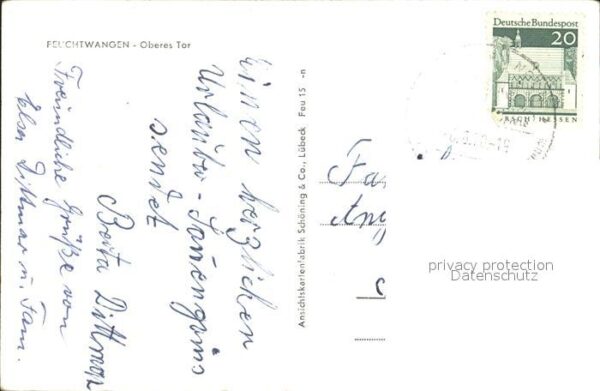 FEUCHTWANGEN - Oberes Tor
Einen herzlichen
Urlaubs-
sendet
Berta Dittmar
Freundliche Grüße von
Elsa Dittmar u. Fam.
Ansichtskartenfabrik Schöning & Co., Lübeck Feu 15 -n
Deutsche Bundespost
20
LORSCH/HESSEN
Fa
privacy protection
Datenschutz